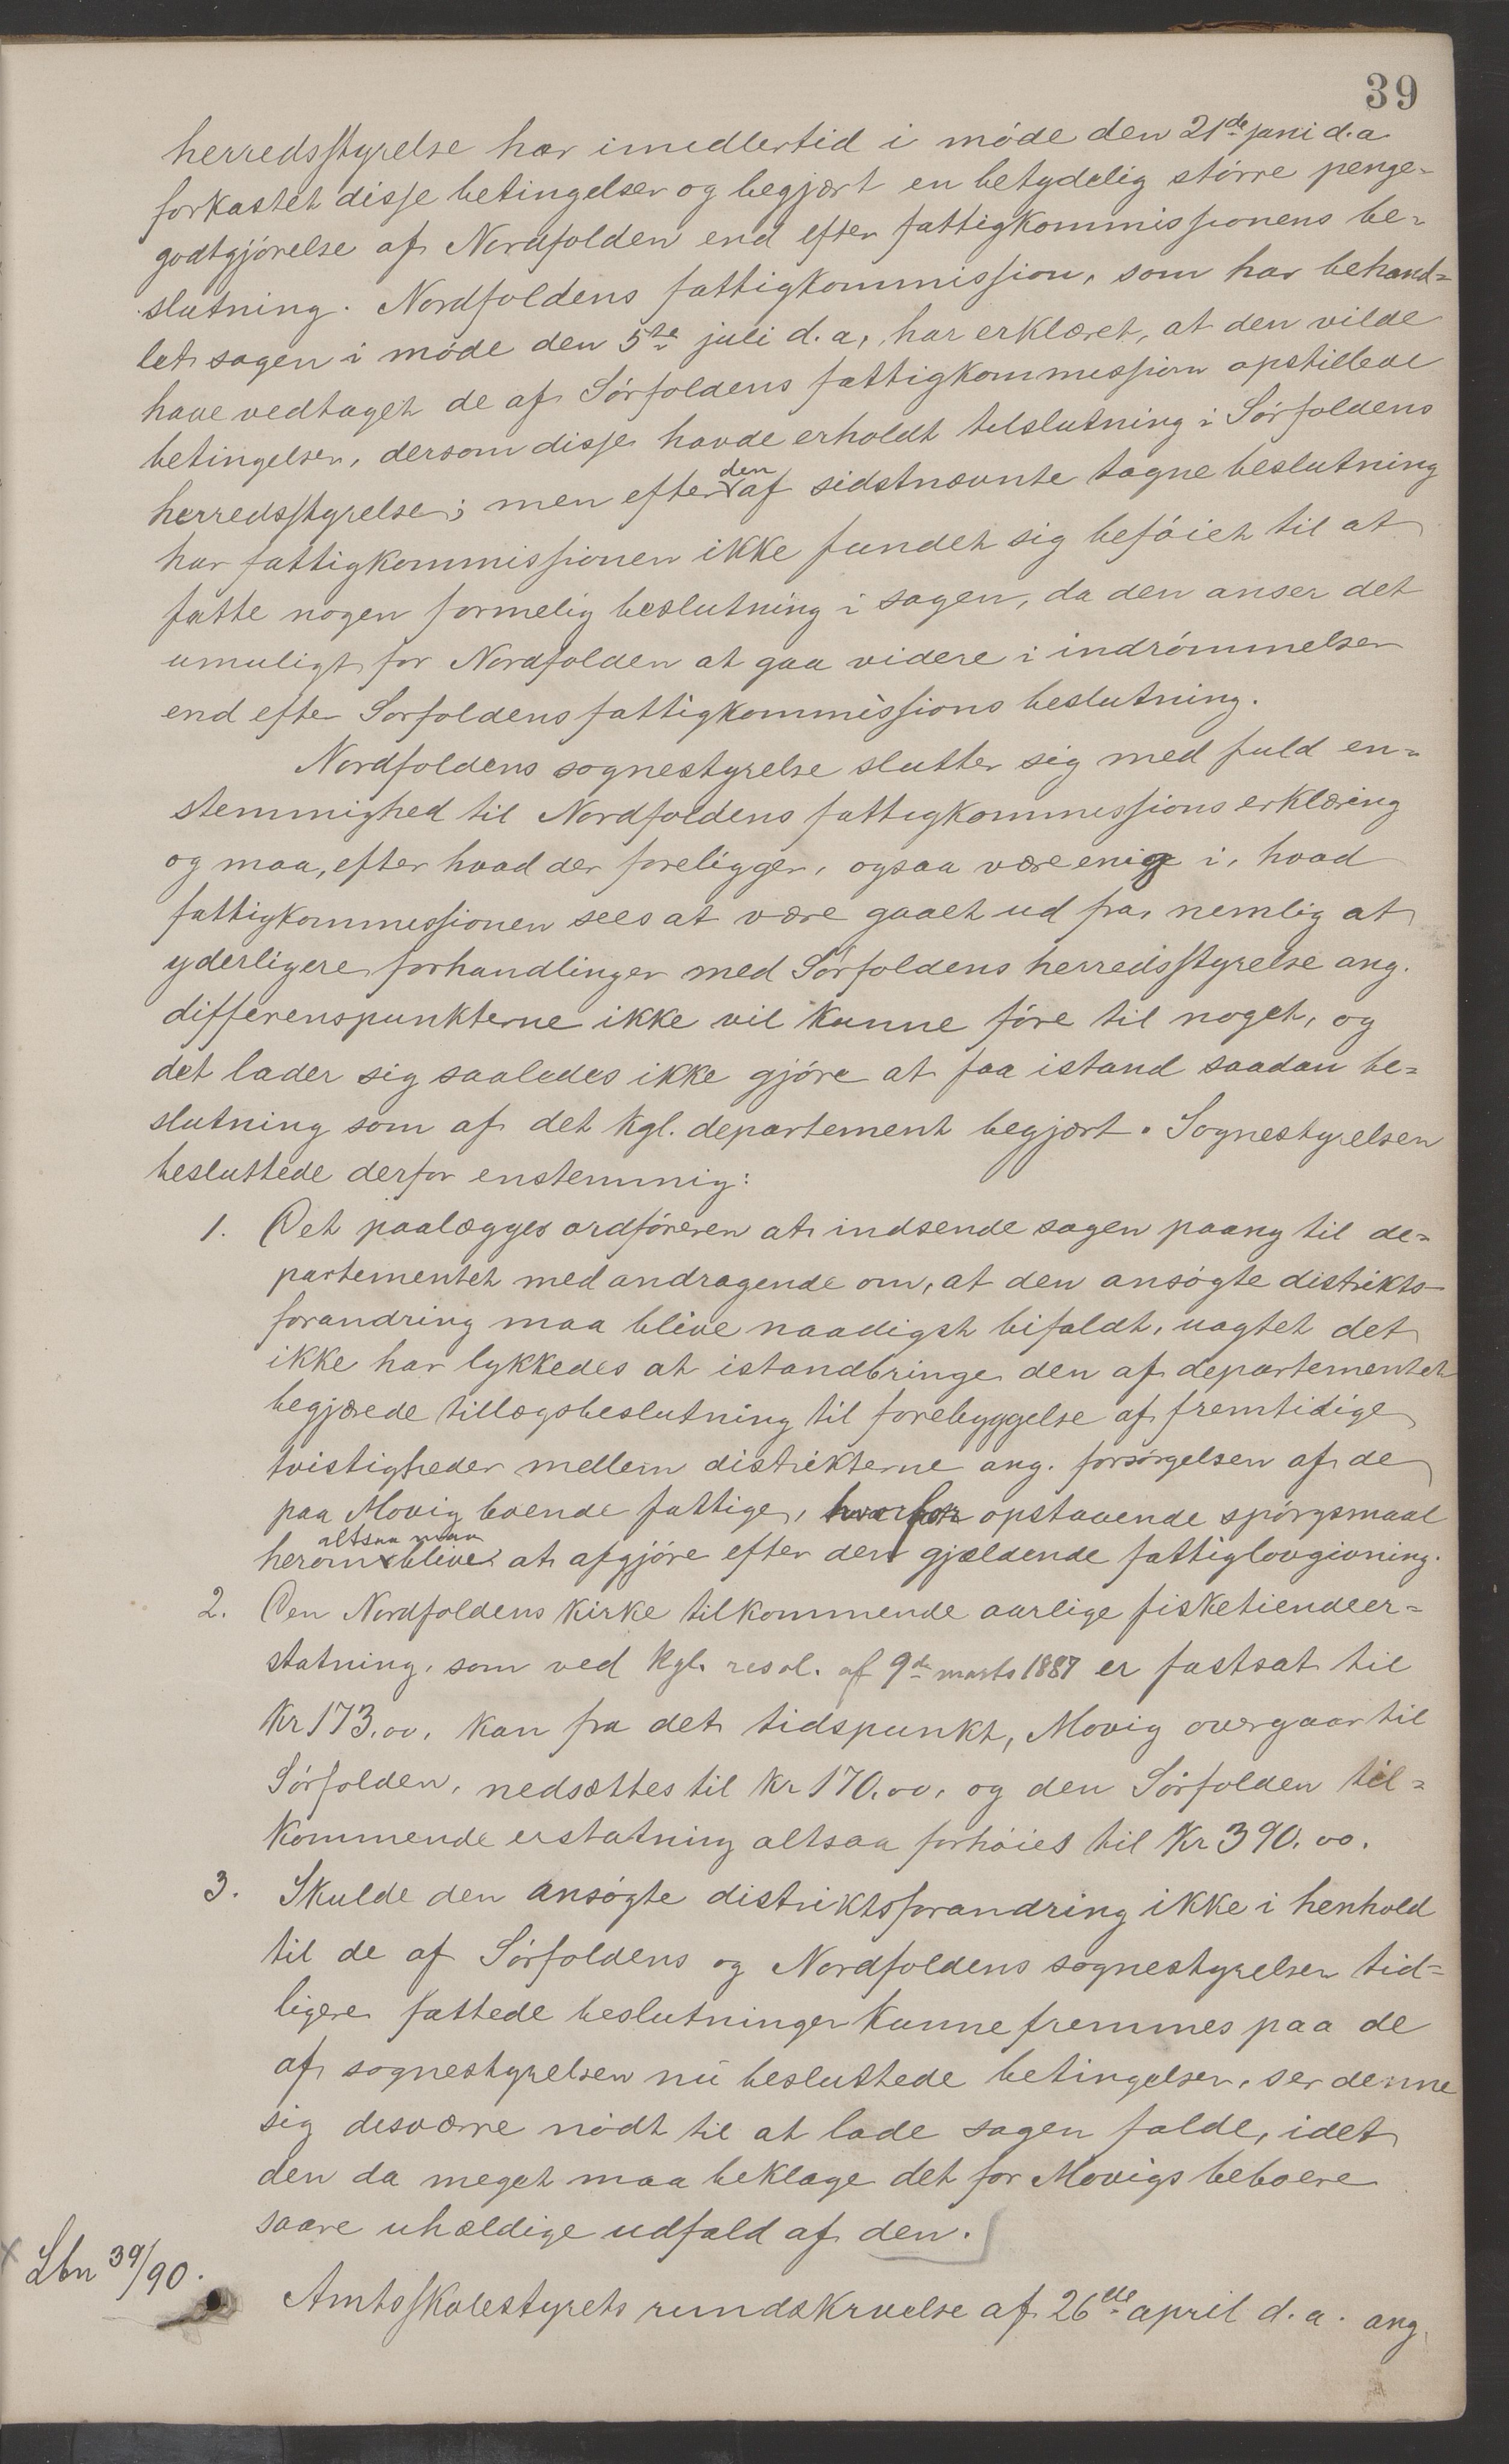 39
herredsstyrelse har imidlertid i møde den 21de juni d.a
forkastet disse betingelser og begjært en betydelig større penge-
godtgjørelse af Nordfolden end efter fattigkommissionens be-
slutning. Nordfoldens fattigkommission, som har behand-
let sagen i møde den 5te juli d.a, har erklæret, at den vilde
have vedtaget de af Sørfoldens fattigkommission opstillede
betingelser, dersom disse havde erholdt tilslutning i Sørfoldens
herredsstyrelse; men efter den af sidstnævnte tagne beslutning
har fattigkommissionen ikke fundet sig beføiet til at
fatte nogen formelig beslutning i sagen, da den anser det
umuligt for Nordfolden at gaa videre i indrømmelser
end efter Sørfoldens fattigkommissions beslutning.
Nordfoldens sognestyrelse slutter sig med fuld en-
stemmighed til Nordfoldens fattigkommissions erklæring
og maa, efter hvad der foreligger, ogsaa være enig i, hvad
fattigkommissionen sees at være gaaet ud fra, nemlig at
yderligere forhandlinger med Sørfoldens herredsstyrelse ang.
differenspunkterne ikke vil kunne føre til noget, og
det lader sig saaledes ikke gjøre at faa istand saadan be-
slutning som af det kgl. departement begjært. Sognestyrelsen
besluttede derfor enstemmig:
1. Det paalægges ordføreren at indsende sagen paany til de-
partementet med andragende om, at den ansøgte distrikts-
forandring maa blive naadigst bifaldt, uagtet det
ikke har lykkedes at istandbringe den af departementet
begjærede tillægsbeslutning til forebyggelse af fremtidige
tvistigheder mellem distrikterne ang. forsørgelsen af de
paa Movig boende fattige, hvorfor opstaaende spørgsmaal
herom altsaa maa blive at afgjøre efter den gjældende fattiglovgivning.
2. Den Nordfoldens kirke tilkommende aarlige fisketiendeer-
statning, som ved kgl. resol. af 9de marts 1887 er fastsat til
Kr 173.00, kan fra det tidspunkt, Movig overgaar til
Sørfolden, nedsættes til Kr 170.00, og den Sørfolden til-
kommende erstatning altsaa forhøies til Kr 390.00.
3. Skulde den ansøgte distriktsforandring ikke i henhold
til de af Sørfoldens og Nordfoldens sognestyrelser tid-
ligere fattede beslutninger kunne fremmes paa de
af sognestyrelsen nu besluttede betingelser, ser denne
sig desværre nødt til at lade sagen falde, idet
den da meget maa beklage det for Movigs beboere
saare uheldige udfald af den.
Lbn 39/90.
Amtsskolestyrets rundskrivelse af 26de april d.a. ang.